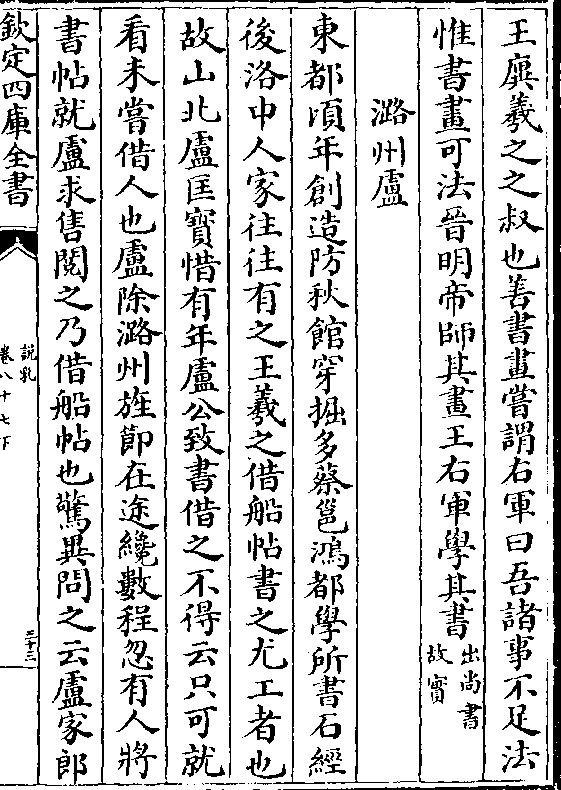 王廙羲之之叔也善書畫嘗謂右軍曰吾諸事不足法
惟書畫可法晉明帝師其畫王右軍學其書出尚書故實
潞州盧
東都頃年創造防秋館穿掘多蔡邕鴻都學所書石經
後洛中人家往往有之王羲之借船帖書之尤工者也
故山北盧匡寳惜有年盧公致書借之不得云只可就
看未嘗借人也盧除潞州旌節在途纔數程忽有人將
書帖就盧求售閱之乃借船帖也驚異問之云盧家郎
欽定四庫全書
說郛
卷八十七下
三十三